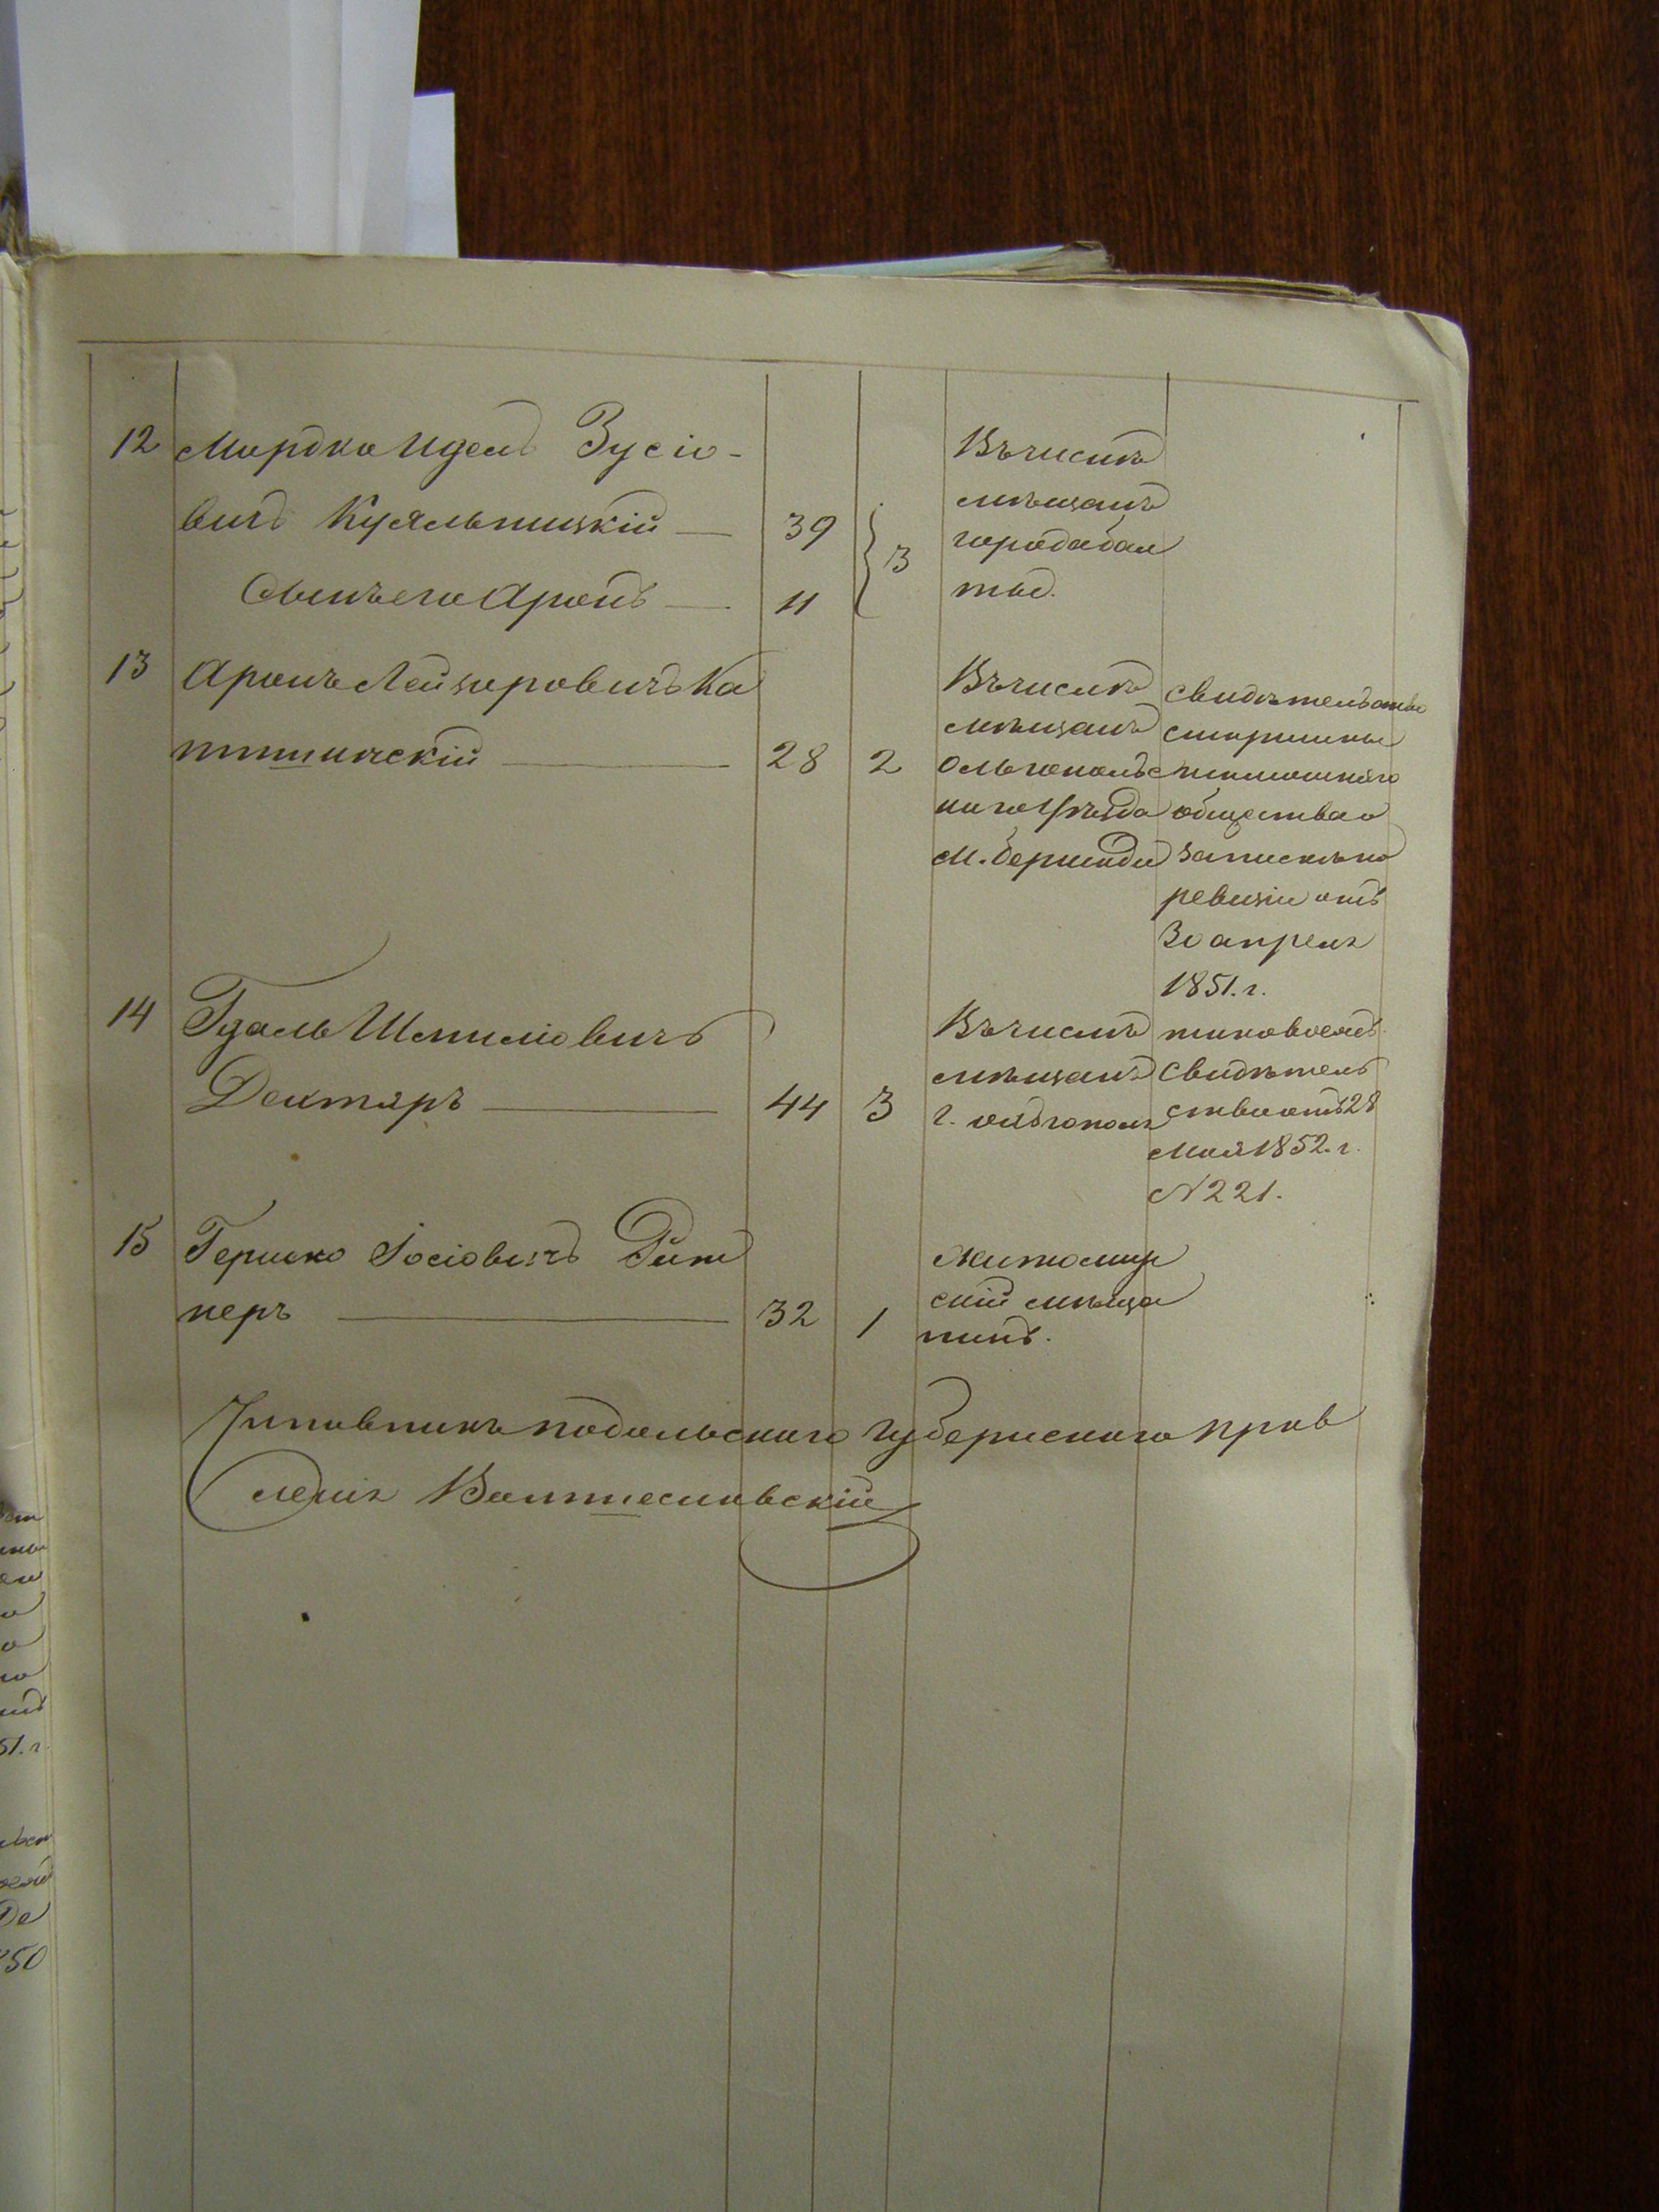 12 Мордко Идель Зусіо-
вичъ Куяльницкій — 39
Сынъ его Аронъ — 11
3
Въ числѣ
мѣщанъ
города Бал
ты.
13 Аронъ Лейзоровичъ Ка
minская
28 2
Въ числѣ
мѣщанъ
Ольгопольс
каго Уѣзда
М. Бершади
свидѣтельство
старшины
тамошняго
общества о
запискѣ по
ревизіи отъ
30 апреля
1851. г.
14 Гдаль Шмиліовичъ
Дехтяръ — 44 3
Въ числѣ
мѣщанъ
г. Ольгополя
таковое жъ
свидѣтель
ство отъ 28
Мая 1852. г.
N 221.
15 Гершко Іосіовичъ Рит
неръ — 32 1
Житомир
скій мѣща
нинъ.
Чиновникъ Подольскаго Губернскаго Прав
ленія